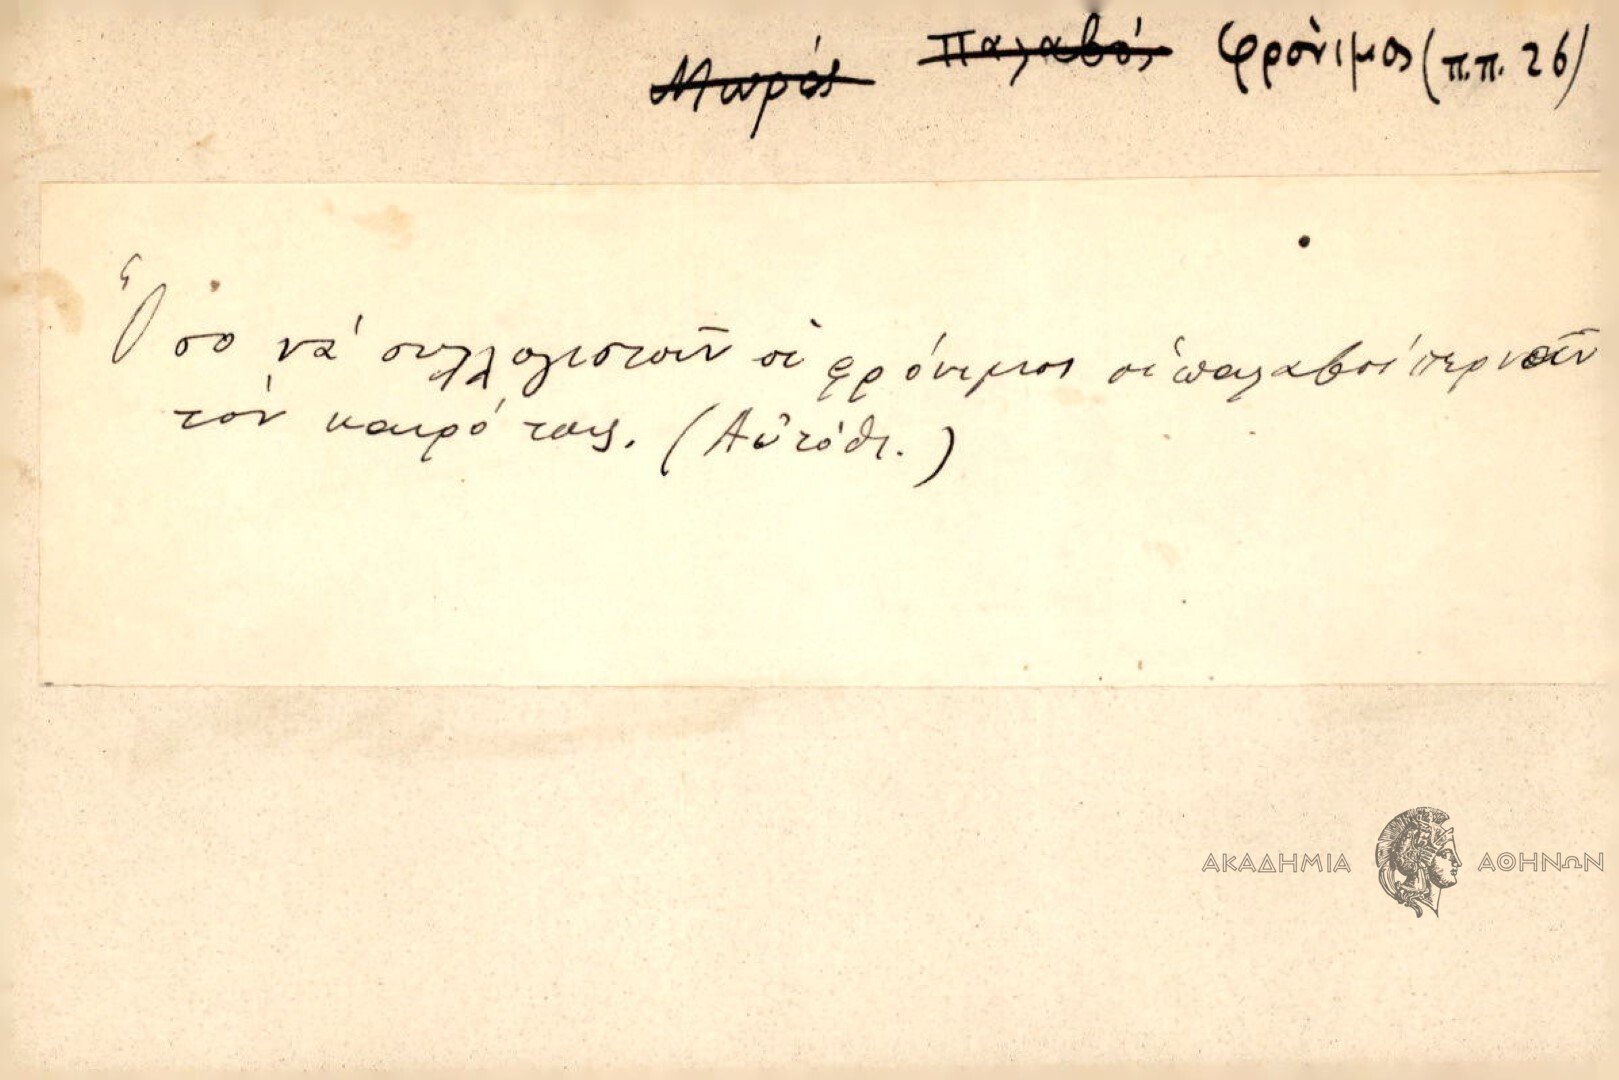 Μωρός Παλαβός φρόνιμος (π.π. 26)
Ὅσο νά συλλογιστοῦν οἱ φρόνιμοι οἱ παλαβοί περνοῦν
τόν καιρό τους. (Αὐτόθι.)
ΑΚΑΔΗΜΙΑ ΑΘΗΝΩΝ